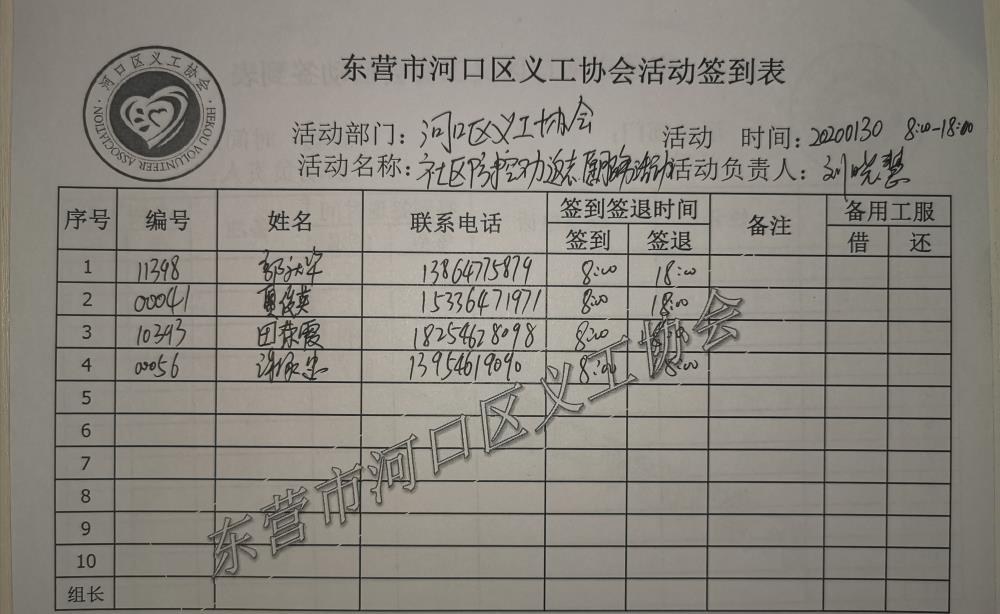 河口区义工协会
HEKOU VOLUNTEER ASSOCIATION
东营市河口区义工协会活动签到表
活动部门：河口区义工协会 活动 时间：20200130 8:00-18:00
活动名称：社区防控劝返志愿服务活动 活动负责人：刘晓慧
序号 编号 姓名 联系电话 签到签退时间 备注 备用工服
签到 签退 借 还
1 11398 13864775879 8:00 18:00
2 00041 15336471971 8:00 18:00
3 10393 田荣霞 18254628098 8:00
4 00056 13954619090 8:00 18:00
5
6
7
8
9
10
组长
东营市河口区义工协会